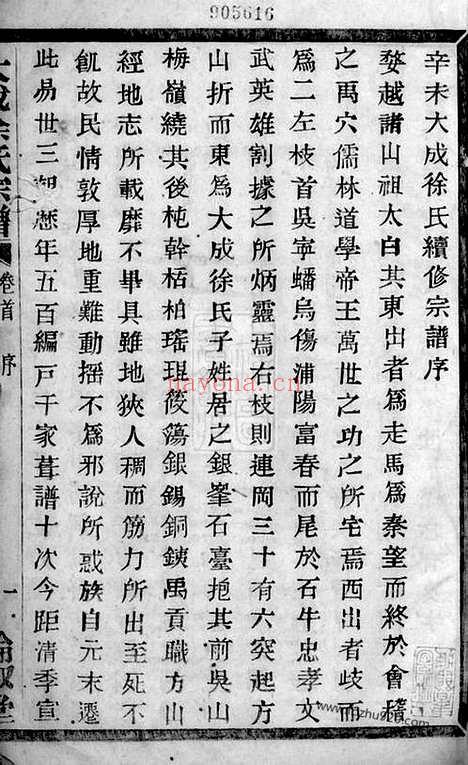 905616
辛未大成徐氏續修宗譜序
婺越諸山祖太白其東出者爲走馬爲秦望而終於會稽
之禹穴儒林道學帝王萬世之功之所宅焉西出者歧而
爲二左枝首吳寧蟠烏傷浦陽富春而尾於石牛忠孝文
武英雄割據之所炳靈焉右枝則連岡三十有六突起方
山折而東爲大成徐氏子姓居之銀峯石臺抱其前吳山
梅嶺繞其後杶幹栝柏瑤琨篠簜銀錫銅鐵禹貢職方山
經地志所載靡不畢具雖地狹人稠而筋力所出至死不
飢故民情敦厚地重難動搖不爲邪說所惑族自元末遷
此易世三朝歷年五百編戶千家葺譜十次今距清季宣
大成徐氏宗譜
卷首
序
一
倫敘堂
nayona.cn
zhuji928.com